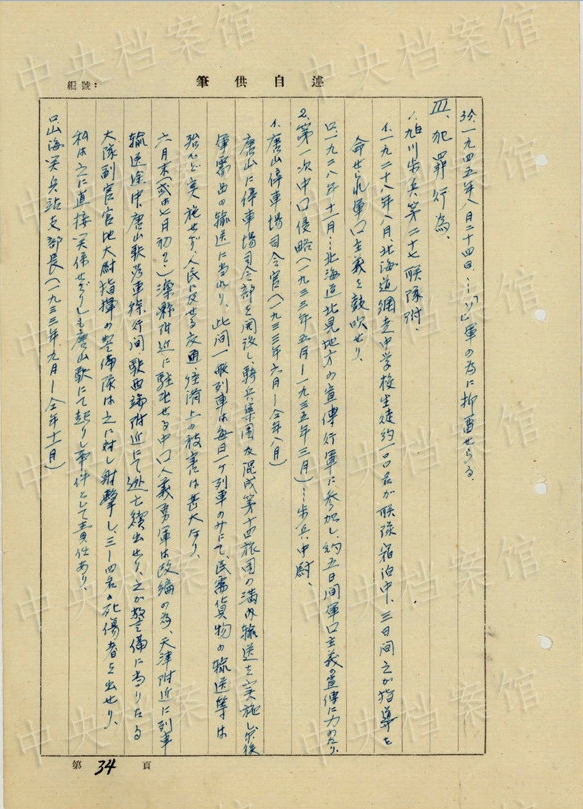 編號：
筆供自述
39、一九四五年八月二十四日…「ソ」軍の為に抑留せらる、
III、犯罪行為、
1、旭川歩兵第二十七聯隊附、
イ、一九二八年八月北海道網走中学校生徒約一〇〇名が聯隊宿泊中、三日間之が指導を
命ぜられ軍口主義を鼓吹せり、
ロ、一九二八年十一月…北海道北見地方の宣傳行軍に参加し、約五日間軍口主義の宣傳に力めたり、
2、第一次中口侵略（一九三三年五月－一九三五年三月）…歩兵中尉、
イ、唐山停車場司令官（一九三三年六月－仝年八月）
唐山に停車場司令部を開設し、騎兵集團及混成第十四旅團の満内輸送を実施し、尓後
軍需品の輸送に当れり、此間一般列車は毎日一ヶ列車のみにて、民需貨物の輸送等は
殆んど実施せず、人民に及せる交通経済上の被害は甚大なり、
六月末（或は七月初？）灤縣附近に駐屯せる中口人義勇軍は改編の為、天津附近に列車
輸送途中、唐山駅乃至操行間駅西端附近にて逃亡続出せり、之が警備に当りたる
大隊副官宮地大尉指揮の警備隊は之に対し射撃し、三－四名の死傷者を出せり、
私は之に直接関係せざりしも唐山駅にて起りし事件として責任あり、
ロ、山海関兵站支部長（一九三三年九月－仝年十一月）
第 34 頁
中央档案馆